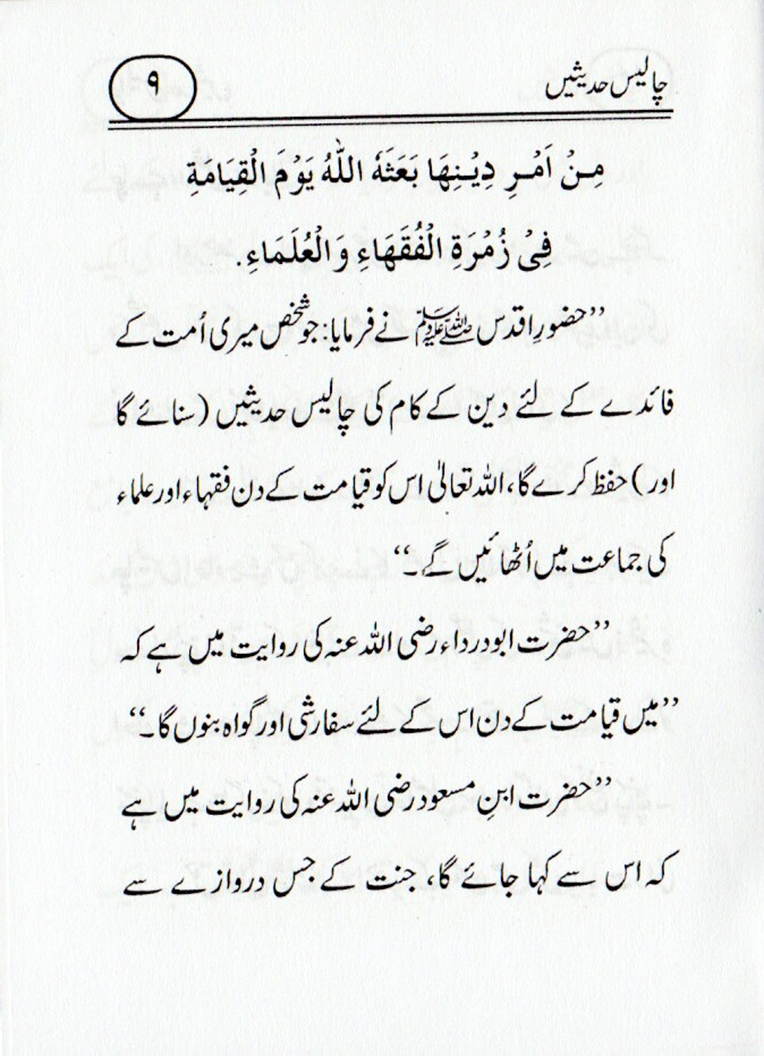 چالیس حدیثیں
۹
مِنْ اَمْرِ دِیْنِهَا بَعَثَهُ اللّٰهُ یَوْمَ الْقِیَامَةِ
فِیْ زُمْرَةِ الْفُقَهَاءِ وَالْعُلَمَاءِ.
”حضورِ اقدس ﷺ نے فرمایا: جو شخص میری اُمت کے
فائدے کے لئے دین کے کام کی چالیس حدیثیں (سنائے گا
اور) حفظ کرے گا، اللہ تعالیٰ اس کو قیامت کے دن فقہاء اور علماء
کی جماعت میں اُٹھائیں گے۔“
”حضرت ابودرداء رضی اللہ عنہ کی روایت میں ہے کہ
”میں قیامت کے دن اس کے لئے سفارشی اور گواہ بنوں گا۔“
”حضرت ابنِ مسعود رضی اللہ عنہ کی روایت میں ہے
کہ اس سے کہا جائے گا، جنت کے جس دروازے سے